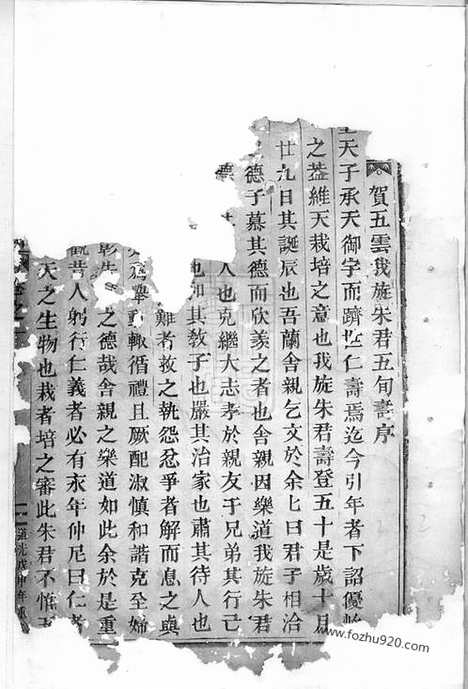 賀五雲我旋朱君五旬壽序
天子承天御宇而躋世仁壽焉迄今引年者下詔優
之蓋維天栽培之意也我旋朱君壽登五十是歲十月
廿九日其誕辰也吾蘭舍親乞文於余七曰君子相洽
德子慕其德而欣羨之者也舍親因樂道我旋朱君
人也克繼大志孝於親友于兄弟其行己
也和其教子也嚴其治家也肅其待人也
難者救之執怨忿爭者解而息之與
舉輒循禮且厥配淑慎和諧克全婦
之德哉舍親之樂道如此余於是重
觀昔人躬行仁義者必有永年仲尼曰仁者
天之生物也栽者培之審此朱君不惟
道光戊申年重
www.fozhu920.com